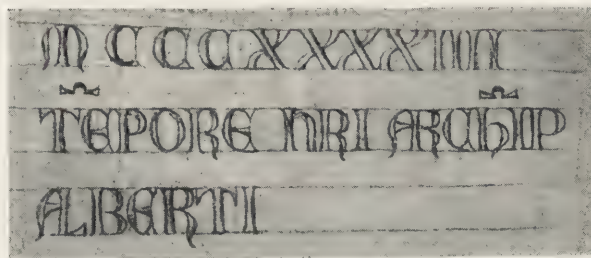 M CCCXXXXIIII
TE̅PORE NRI ARCHI̅P
ALBERTI